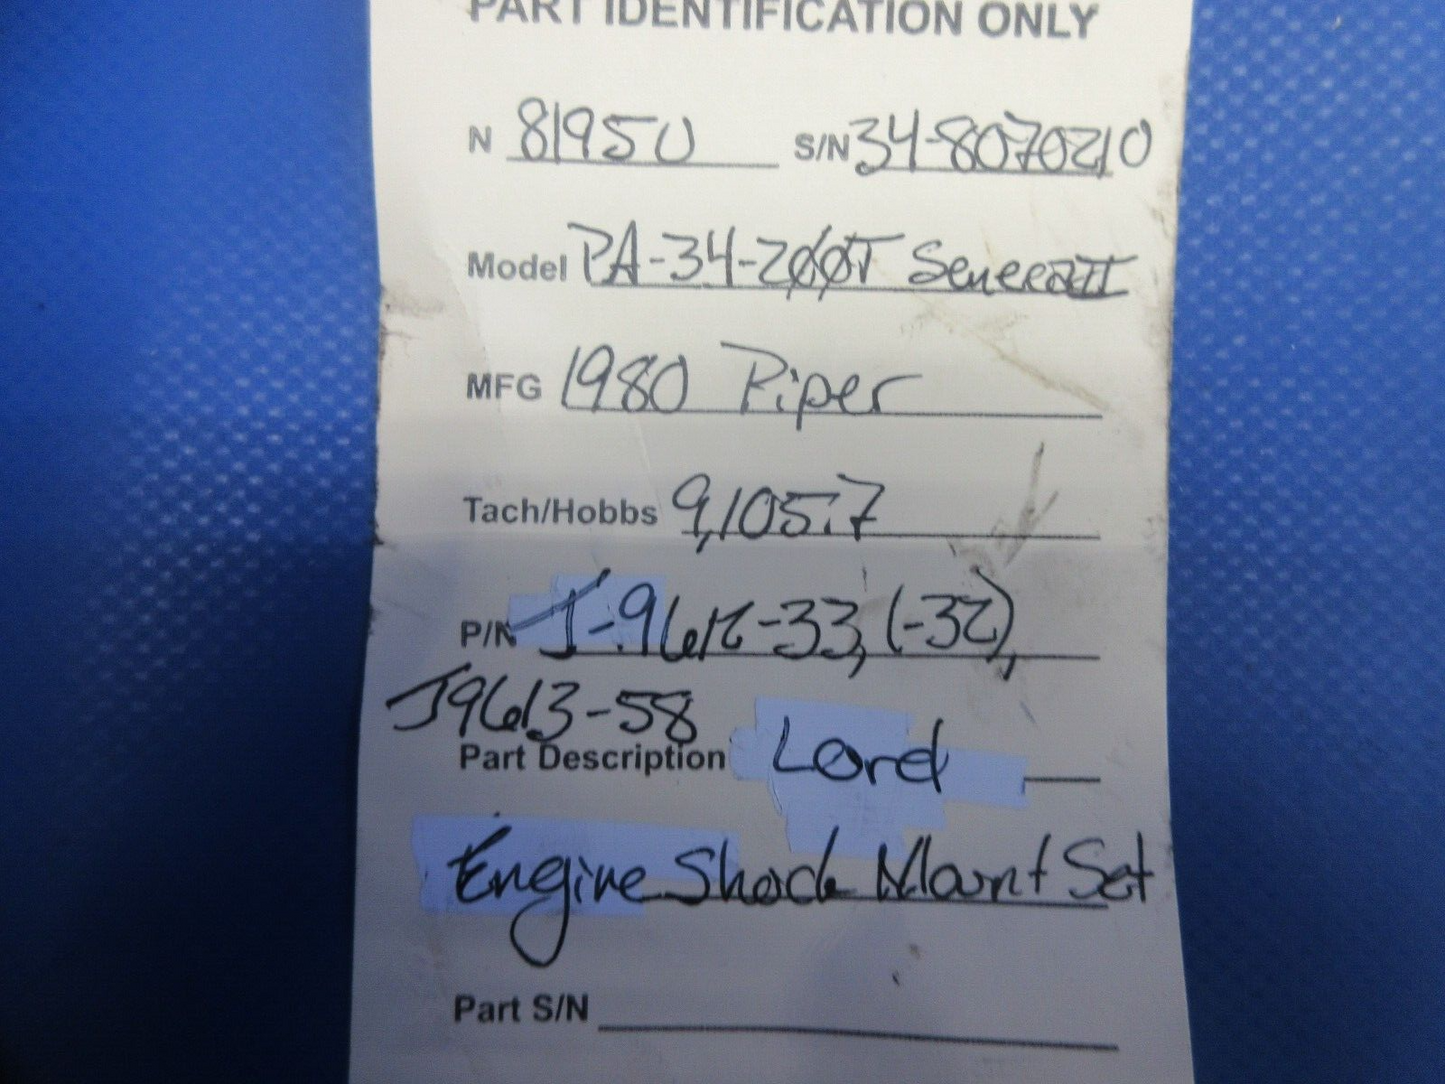 PART IDENTIFICATION ONLY
N 8195U S/N 34-8070210
Model PA-34-200T Seneca II
MFG 1980 Piper
Tach/Hobbs 9,105.7
P/N J-9612-33, (-32),
J9613-58
Part Description Lord
Engine Shock Mount Set
Part S/N